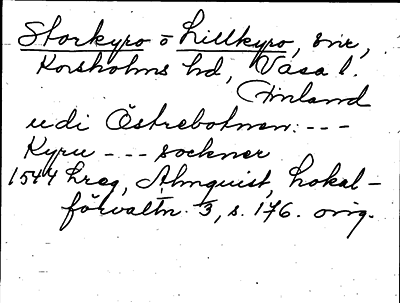 Storkyro o Lillkyro, snr,
Korsholms hd, Vasa l.
Finland
udi Östrebotnen: ---
Kyru --- sockner
1544 Lreg, Almquist, Lokal-
förvaltn. 3, s. 176. orig.